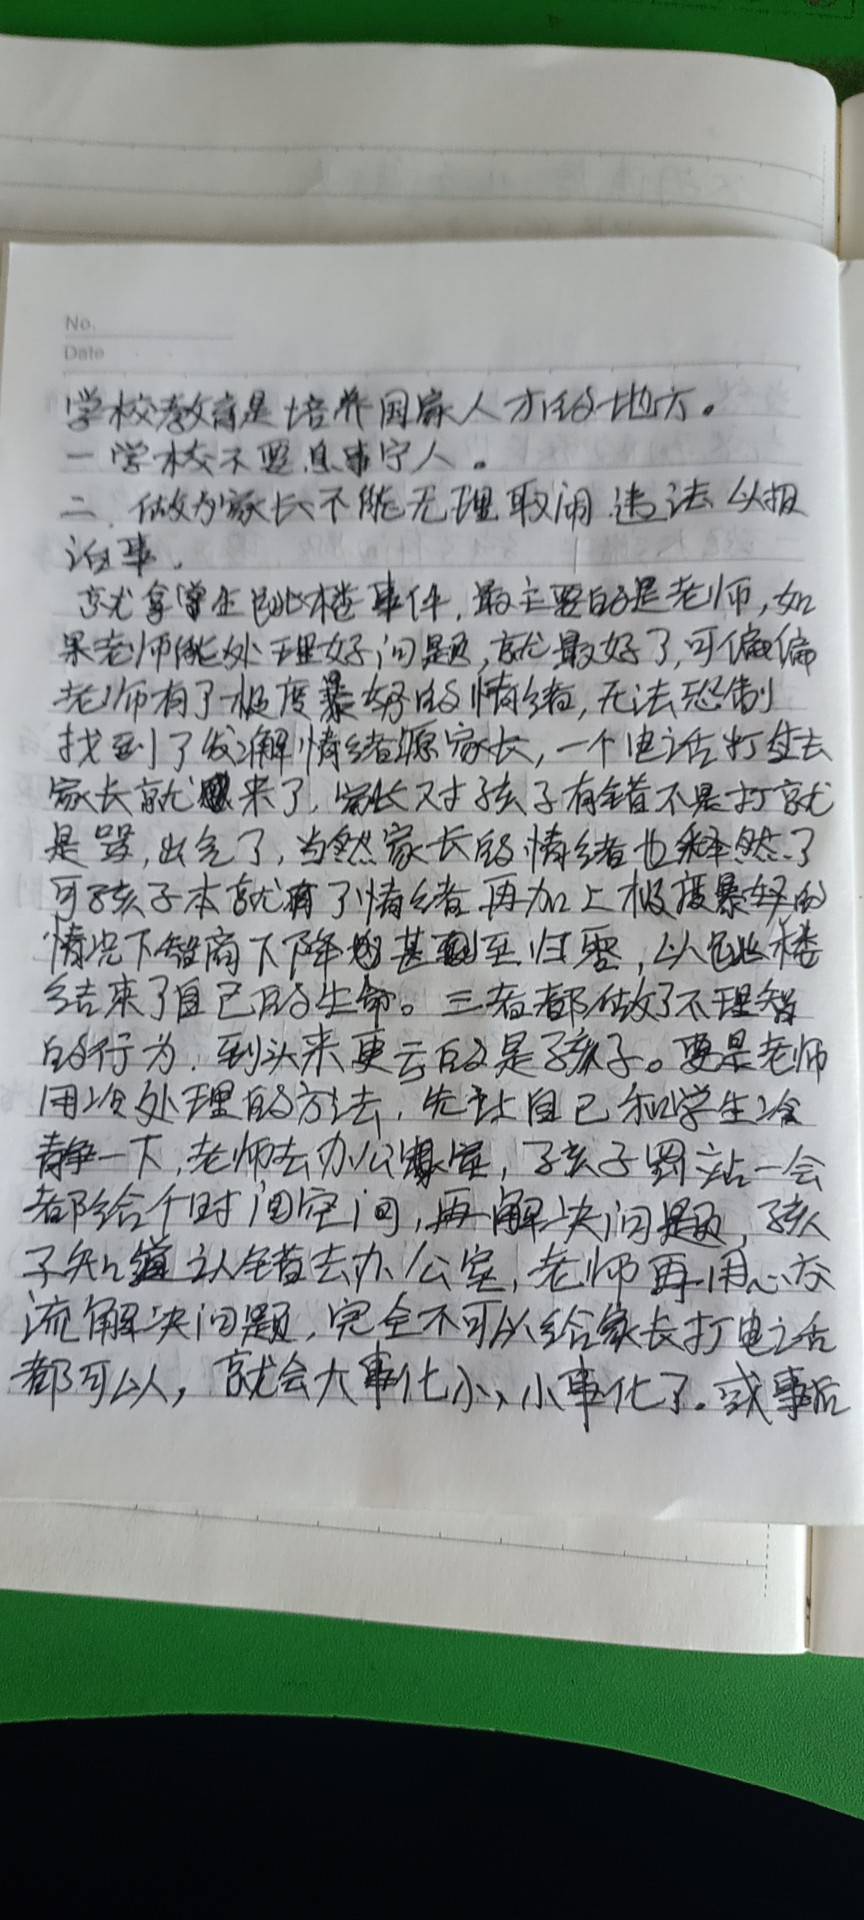 No.
Date
学校教育是培养国家人才的地方。
一学校不要息事宁人。
二、做为家长不能无理取闹违法以报
就拿学生跳楼事件,最主要的是老师,如
果老师能处理好问题,就最好了,可偏偏
老师有了极度暴怒的情绪,无法控制
找到了发解情绪源家长,一个电话打过去
家长就来了,家长对孩子有错不是打就
是骂,出气了,当然家长的情绪也释然了
可孩子本就有了情绪再加上极度暴怒的
情况下智商下降甚至归零,以跳楼
结束了自己的生命。三者都做了不理智
的行为,到头来更亏的是孩子。要是老师
用冷处理的方法,先让自己和学生冷
静一下,老师去办公室,孩子罚站一会
都给个时间空间,再解决问题,孩
子知道认错去办公室,老师再用心交
流解决问题,完全不可以给家长打电话
都可以,就会大事化小、小事化了。或事后